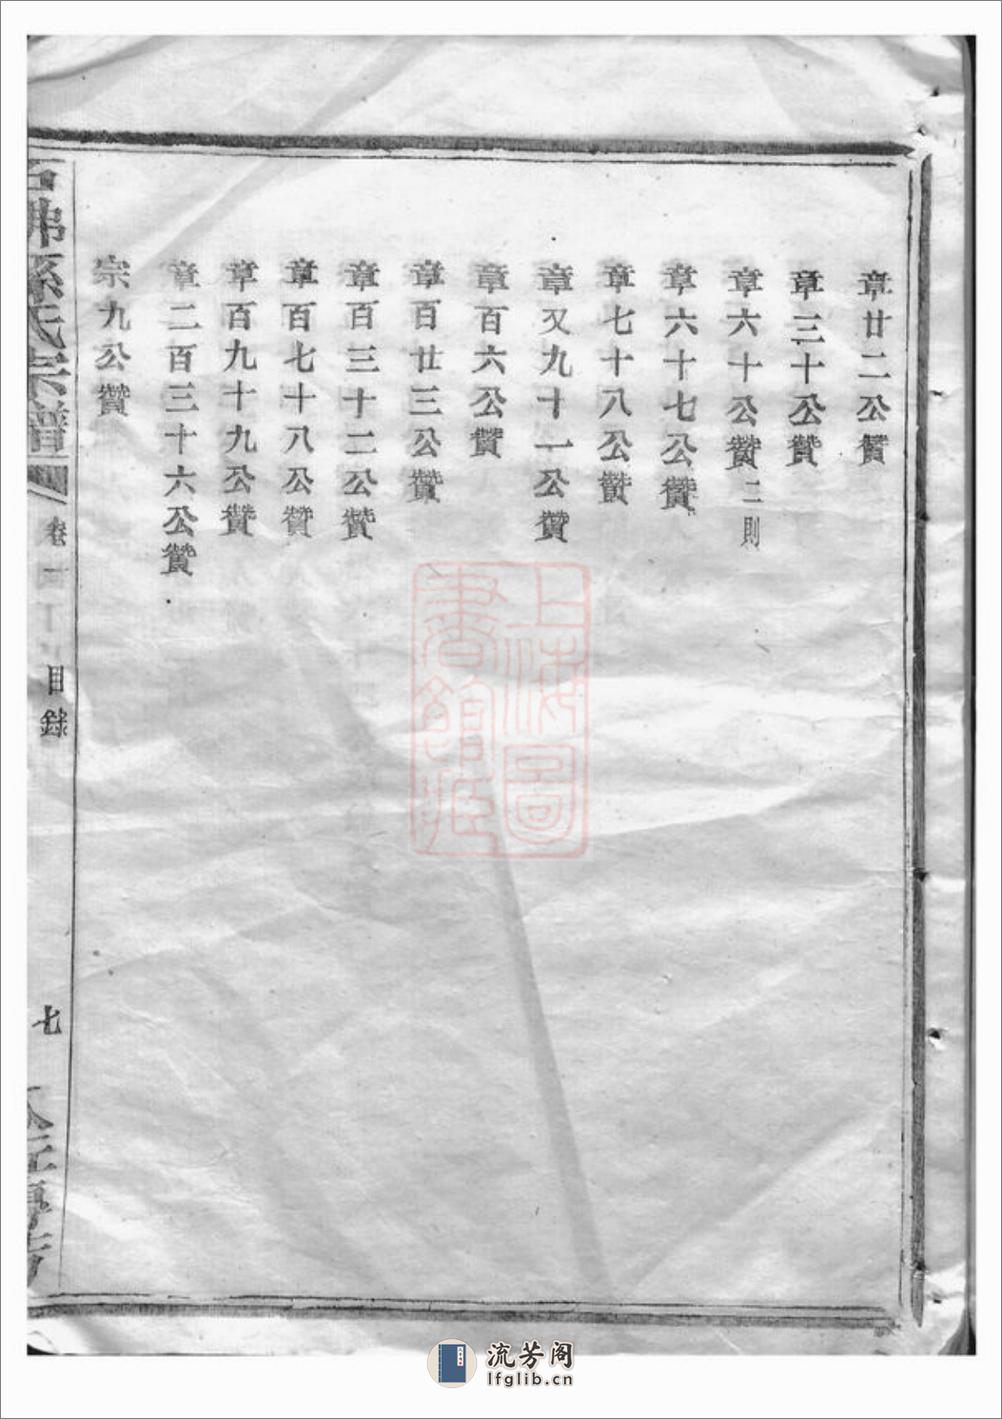 章廿二公贊
章三十公贊
章六十公贊二則
章六十七公贊
章七十八公贊
章又九十一公贊
章百六公贊
章百廿三公贊
章百三十二公贊
章百七十八公贊
章百九十九公贊
章二百三十六公贊
宗九公贊
氏宗譜 卷一 目錄 七
上海圖書館藏
流芳阁
lfglib.cn